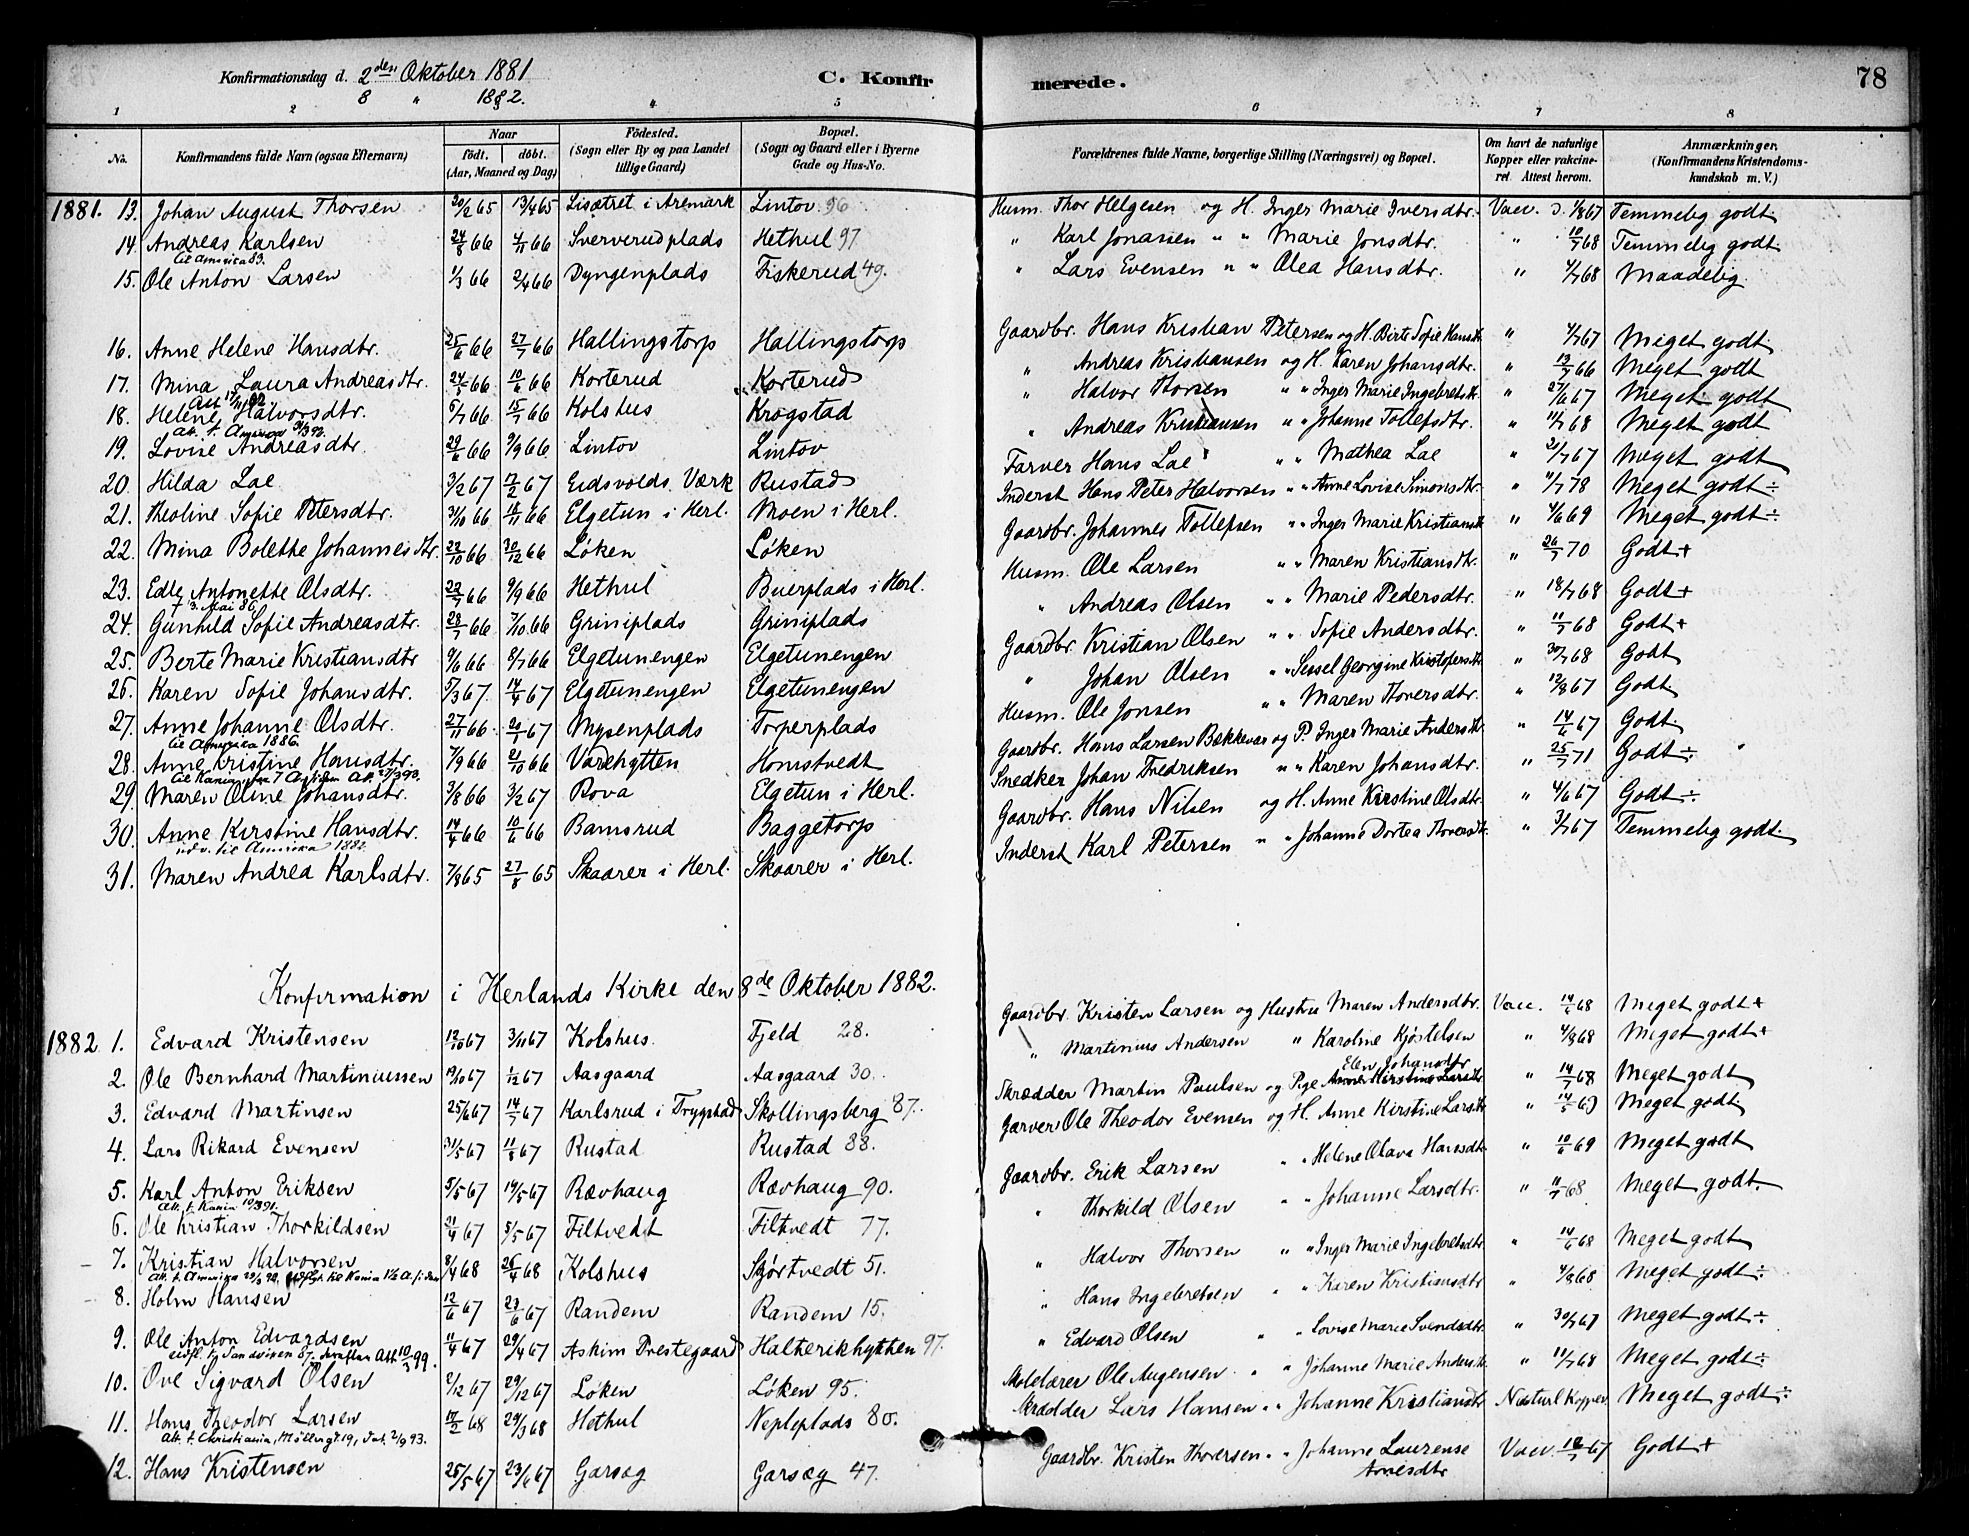 Konfirmationsdag d. 2den Oktober 1881 C. Konfirmerede. 78
8 " 1882.
1 2 3 4 5 6 7 8
No. Konfirmandens fulde Navn (ogsaa Efternavn) Naar födt. döbt. (Aar, Maaned og Dag) Födested. (Sogn eller By og paa Landet tillige Gaard) Bopæl. (Sogn og Gaard eller i Byerne Gade og Hus-No. Forældrenes fulde Navne, borgerlige Stilling (Næringsvei) og Bopæl. Om havt de naturlige Kopper eller vakcineret. Attest herom. Anmærkninger. (Konfirmandens Kristendomskundskab m. V.)
1881. 13. Johan August Thorsen 20/2 65 13/4 65 Lisætret i Aremark Lintov 96 Husm. Thor Helgesen og H. Inger Marie Iversdtr. Vacc. d. 1/8 67 Temmelig godt
14. Andreas Karlsen 24/8 66 4/11 66 Sververudplads Hethul 97 " Karl Jonassen " " Marie Jonsdtr. " 10/7 68 Temmelig godt
til Amerika 83.
15. Ole Anton Larsen 1/3 66 2/4 66 Dyngenplads Fiskerud 49. " Lars Evensen " " Olea Hansdtr. " 4/7 68 Maadelig
16. Anne Helene Hansdtr. 25/6 66 27/7 66 Hallingstorp Hallingstorp Gaardbr. Hans Kristian Petersen og H. Birte Sofie Hansdtr. " 4/7 67 Meget godt
17. Mina Laura Andreasdtr. 24/5 66 10/6 66 Korterud Korterud " Andreas Kristiansen og H. Karen Johansdtr. " 13/7 66 Meget godt
18. Helene Halvorsdtr. 5/7 66 15/7 66 Kolshus Krogstad " Halvor Thorsen " " Inger Marie Ingebretsdtr. " 27/6 67 Meget godt
Att. t. Amerika 31/3 92.
19. Lovise Andreasdtr. 29/6 66 9/9 66 Lintov Lintov " Andreas Kristiansen " " Johanne Tollefsdtr. " 11/7 68 Meget godt
20. Hilda Lae 3/2 67 17/2 67 Eidsvolds Værk Rustad Farver Hans Lae " " Mathea Lae " 21/7 67 Meget godt
21. Theoline Sofie Petersdtr. 31/10 66 18/11 66 Elgetun i Herl. Moen i Herl. Inderst Hans Peter Halvorsen " " Anne Lovise Simonsdtr. " 11/7 78 Meget godt ÷
22. Mina Bolette Johannesdtr. 22/10 66 30/12 66 Löken Löken Gaardbr. Johannes Tollefsen " " Inger Marie Kristiansdtr. " 4/6 69 Meget godt ÷
23. Edle Antonette Olsdtr. 22/7 66 9/9 66 Hethul Buerplads i Herl. Husm. Ole Larsen " " Maren Kristiansdtr. " 26/7 70 Godt +
† 3. Mai 86.
24. Gunhild Sofie Andreasdtr. 28/7 66 7/10 66 Griniplads Griniplads " Andreas Olsen " " Marie Pedersdtr. " 18/7 68 Godt +
25. Berte Marie Kristiansdtr 9/6 66 8/7 66 Elgetunengen Elgetunengen Gaardbr. Kristian Olsen " " Sofie Andersdtr. " 11/7 68 Godt +
26. Karen Sofie Johansdtr. 5/3 67. 14/4 67 Elgetunengen Elgetunengen " Johan Olsen " " Sessel Georgine Kristofersdtr. " 30/7 68 Godt
27. Anne Johanne Olsdtr. 27/11 66 20/1 67 Mysenplads Torperplads Husm. Ole Jonsen " " Maren Thoversdtr. " 12/8 67 Godt
til Amerika 1886.
28. Anne Kristine Hansdtr. 7/9 66 21/10 66 Vardehytten Homstvedt Gaardbr. Hans Larsen Bækkevar og P. Inger Marie Andersdtr. " 14/6 67 Godt
29. Maren Oline Johansdtr. 3/8 66 3/2 67 Rova Elgetun i Herl. Snedker Johan Fredriksen " " Karen Johansdtr. " 25/7 71 Godt ÷
30. Anne Kirstine Hansdtr. 14/4 66 10/6 66 Bamsrud Baggetorp Gaardbr. Hans Nilsen og H. Anne Kirstine Olsdtr. " 4/6 67 Godt ÷
udv. til Amerika 1882.
31. Maren Andrea Karlsdtr. 7/8 65 27/8 65 Skaarer i Herl. Skaarer i Herl. Inderst Karl Petersen " " Johanne Dortea Thoversdtr. " 3/7 67 Temmelig godt.
Konfirmation i Herlands Kirke den 8de Oktober 1882.
1882. 1. Edvard Kristensen 12/10 67 3/11 67 Kolshus. Fjeld 28. Gaardbr. Kristen Larsen og Hustru Maren Andersdtr. Vacc. 14/6 68 Meget godt +
2. Ole Bernhard Martiniussen 19/10 67 1/12 67 Aasgaard Aasgaard 30. " Martinius Andersen " Karoline Kjöstelsen " 4/8 68 Meget godt +
3. Edvard Martinsen 25/6 67 14/7 67 Karlsrud i Trygstad Skollingsberg 87. Skrædder Martin Paulsen og Pige Elen Johansdtr " 14/7 68 Meget godt
4. Lars Rikard Evensen 31/5 67 11/8 67 Rustad Rustad 88. Garver Ole Theodor Evensen og H. Anne Kirstine Larsdtr " 14/5 69 Meget godt
5. Karl Anton Eriksen 5/5 67 19/5 67 Rævhaug Rævhaug 90. Gaardbr. Erik Larsen " " Helene Olava Hansdtr " 10/6 69 Meget godt
6. Ole Kristian Thorkildsen 21/4 67 5/5 67 Filtvedt Filtvedt 77. " Thorkild Olsen " " Johanne Larsdtr. " 11/7 68. Meget godt.
7. Kristian Halvorsen 8/4 68 26/4 68 Kolshus Sjörtvedt 51. " Halvor Thorsen " " Inger Marie Ingebretsdtr " 14/6 68 Meget godt
8. Holm Hansen 12/6 67 23/6 67 Randem Randem 15. " Hans Ingebretsen " " Karen Kristiansdtr " 4/8 68 Meget godt ÷
9. Ole Anton Edvardsen 11/4 67 29/4 67 Askim Prestegaard Halterikhytten 97. " Edvard Olsen " " Lovise Marie Svendsdtr. " 30/7 67 Meget godt ÷
10. Ove Sigvard Olsen 2/12 67 29/12 67 Löken Löken 95. Ole Augensen " " Johanne Marie Andersdtr. " 11/7 68 Meget godt ÷
11. Hans Theodor Larsen 17/2 68 29/3 68 Hethul Nepleplads 80. Skrædder Lars Hansen " " Johanne Kristiansdtr Naturl. Kopper Meget godt ÷
Att. t. Christiania, Möllergt 19, Dat. 2/9 93.
12. Hans Kristensen 25/5 67 23/6 67 Garsæg Garsæg 47. Gaardbr. Kristen Thoversen " " Johanne Laurense Arnesdtr Vacc. 18/7 67 Godt +